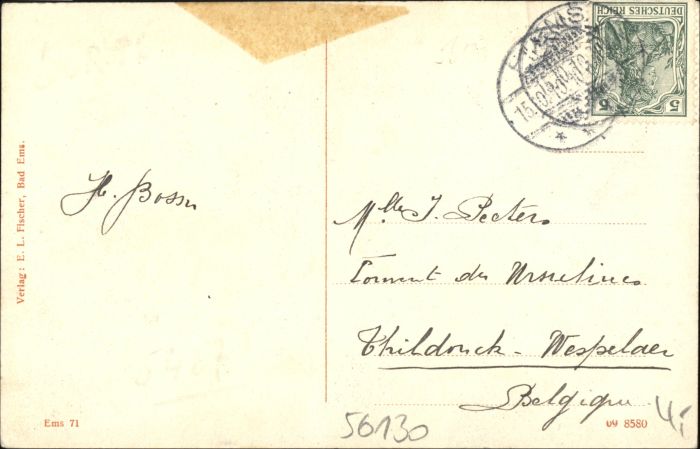 DEUTSCHES REICH
5 5
EMS
15.
Verlag: E. L. Fischer, Bad Ems.
H. Bosson
Mlle J. Peeters
Couvent des Ursulines
Thildonck - Wespelaer
Belgique
Ems 71
56130
09 8580
4,-